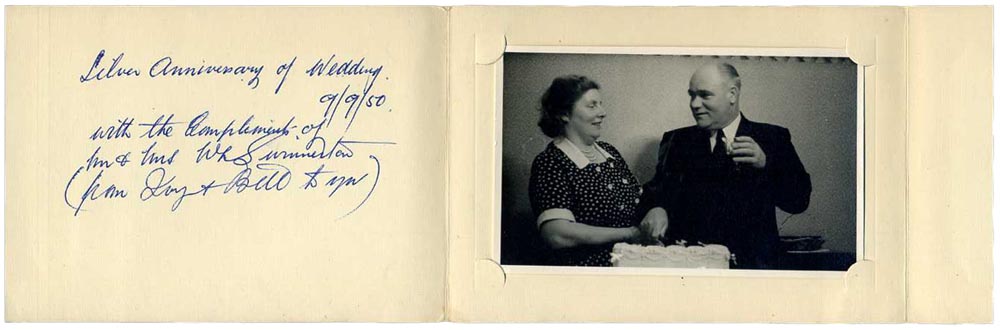 Silver Anniversary of Wedding.
9/9/50.
with the Compliments of
Mr & Mrs W Swinnerton
(from Ivy & Bill to you)